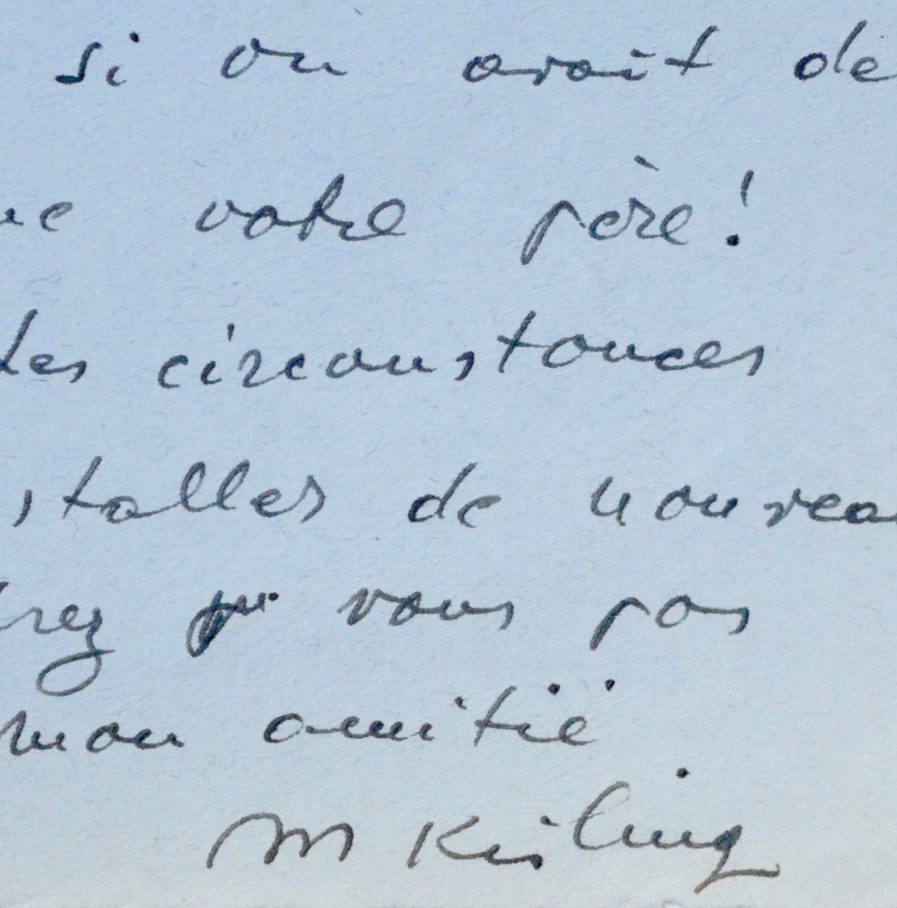 si on avait de
ue votre père!
les circonstances
stalles de nouvea
rez vous pas
mon amitié
M Kisling